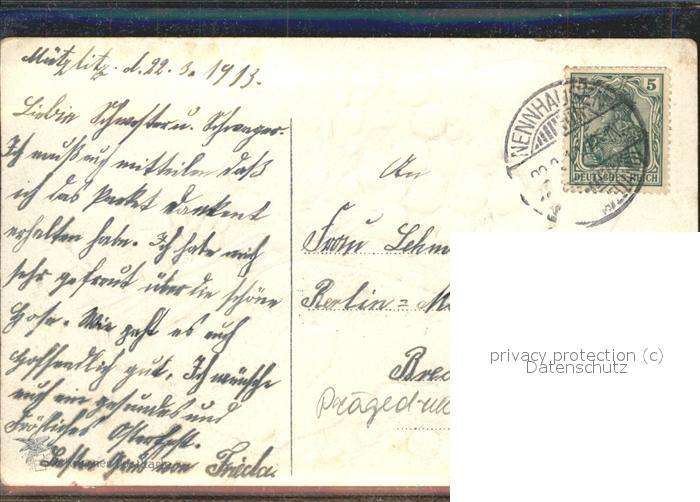 Mützlitz. d. 22.3. 1913.
Liebe Schwester u. Schwager.
Ich muß euch mitteilen daß
ich das Packet dankent
erhalten habe. Ich habe mich
sehr gefreut über die schöne
Hose. Wie geht es euch
hoffendlich gut. Ich wünsche
euch ein gesundes und
Fröhliches Osterfest.
Beste Grüß von Frieda.
NENNHAUSEN
5
DEUTSCHES REICH
An
Frau Lehm
Berlin = M
Bre
Prägedruck
privacy protection (c)
Datenschutz